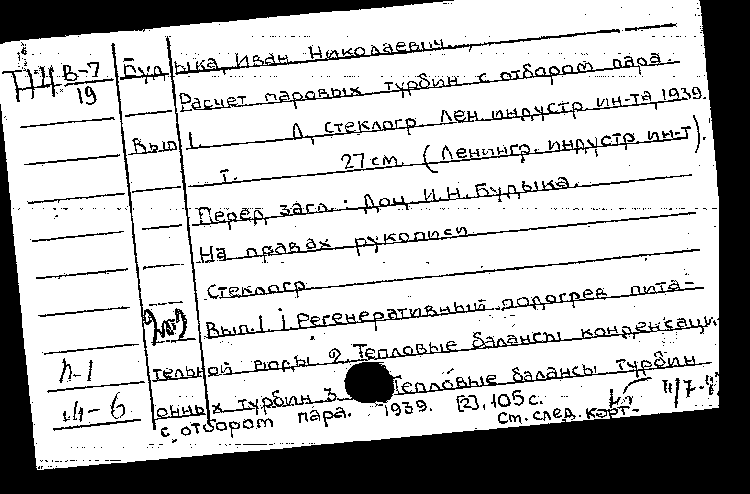 ТЧ В-7/19 Будыка, Иван Николаевич.
Расчет паровых турбин с отбором пара.
Вып. 1. Л, стеклогр. Лен. индустр. ин-та, 1939.
т. 27 см. (Ленингр. индустр. ин-т).
Перед загл.: Доц. И.Н. Будыка.
На правах рукописи
Стеклогр.
Вып. 1. 1. Регенеративный подогрев пита-
тельной воды 2. Тепловые балансы конденсаци-
онных турбин 3. Тепловые балансы турбин
с отбором пара. 1939. [2], 105 с.
См. след. карт.